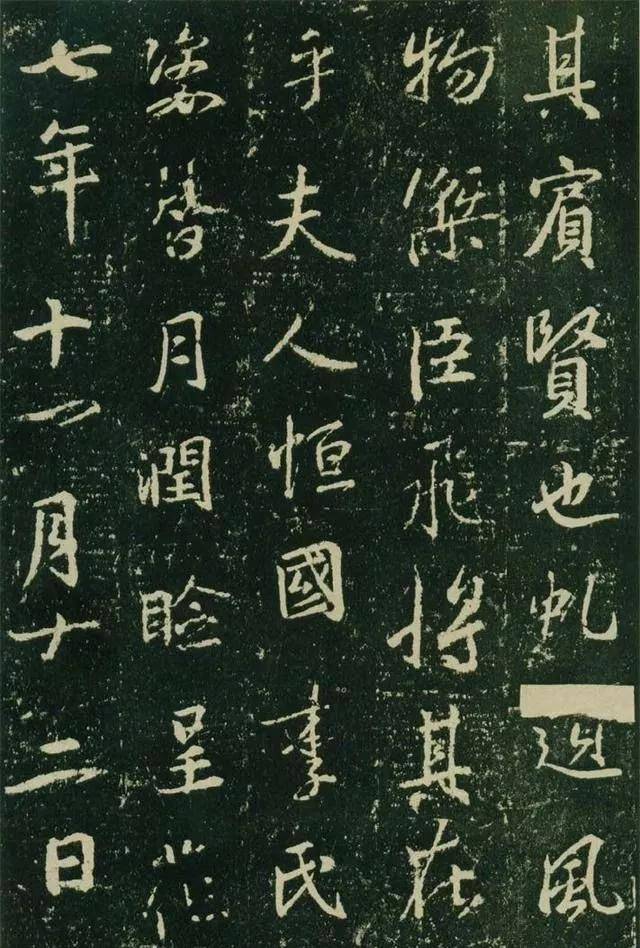 其賓賢也虬風
物傑臣飛將其在
乎夫人恒國李氏
姿替月潤臉呈
七年十一月十二日